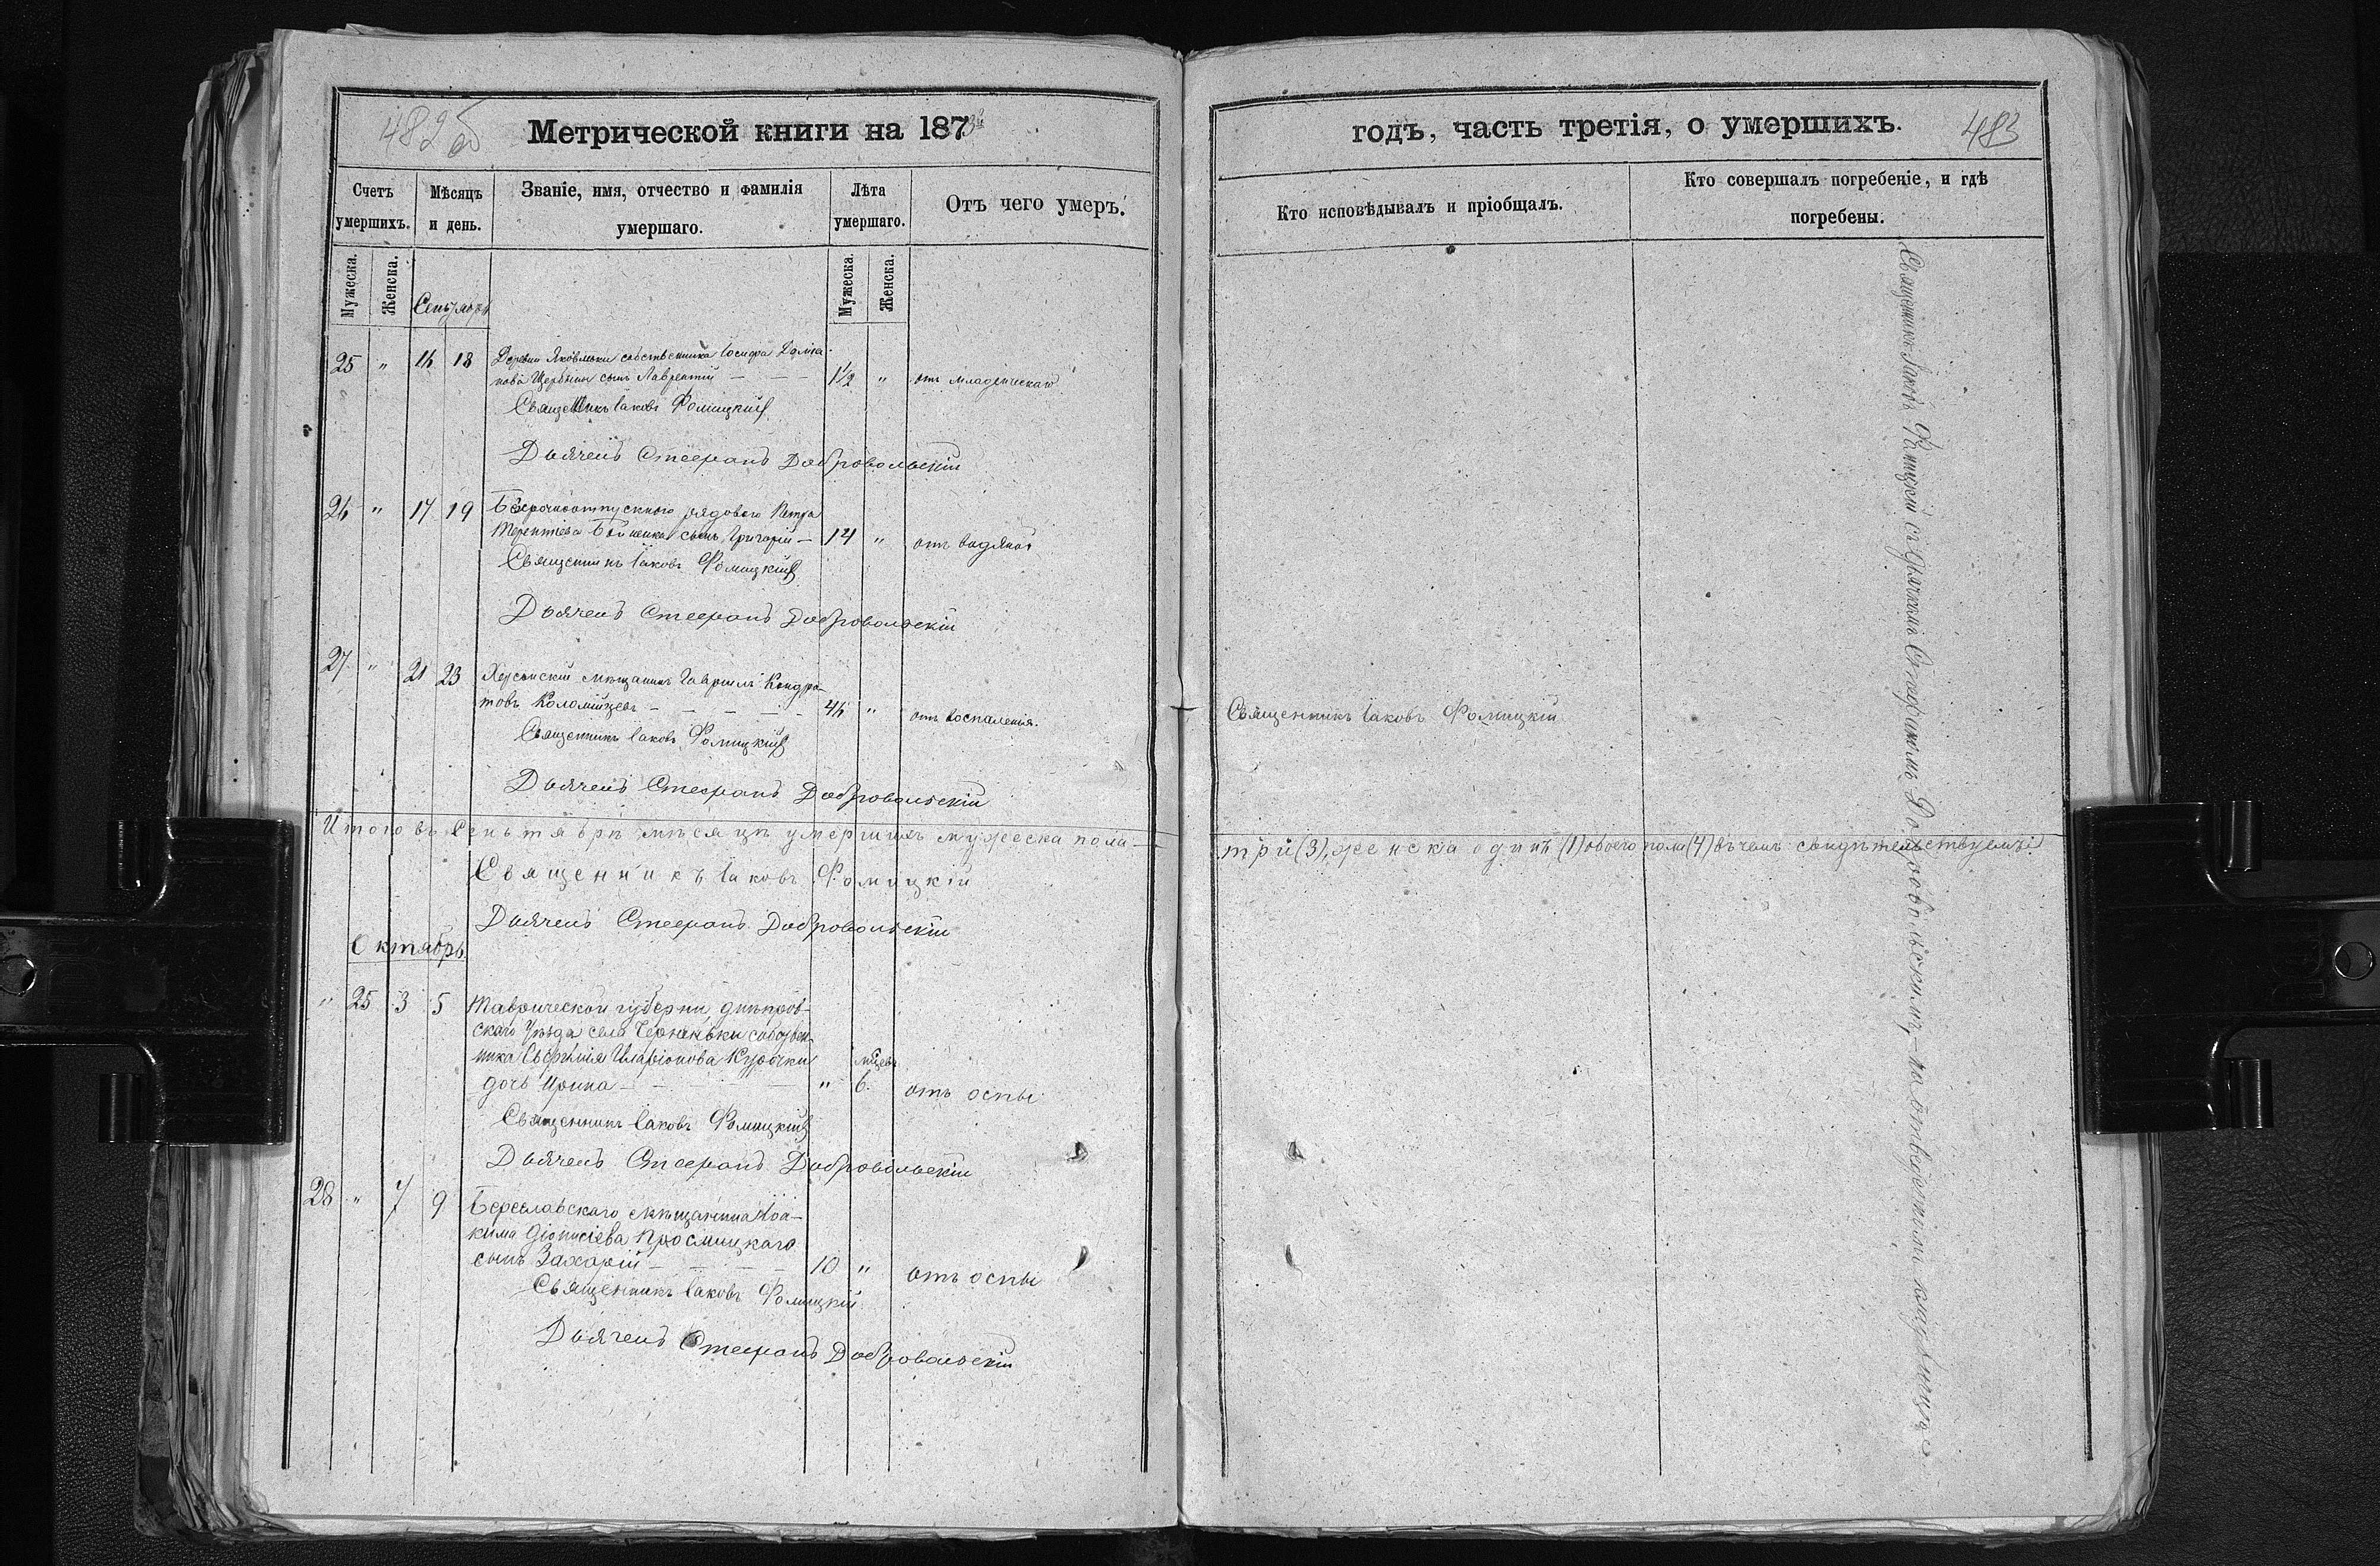 482 об
Метрической книги на 1873й
годъ, часть третія, о умершихъ.
483
Счетъ умершихъ.
Мѣсяцъ и день.
Званіе, имя, отчество и фамилія умершаго.
Лѣта умершаго.
Отъ чего умеръ.
Кто исповѣдывалъ и пріобщалъ.
Кто совершалъ погребеніе, и гдѣ погребены.
Мужеска.
Женска.
Мужеска.
Женска.
Сентябрь
25 " 16 18 Деревни собственника Іосифа
нова Щербины сынъ Лаврентій — — 1½ " отъ младенческаго
Священникъ Іаковъ Фомицкій
Дьячекъ Стефанъ Добровольскій
26 " 17 19 Безсрочноотпускного рядового Петра
Терентіева сынъ Григорій — 14 " отъ водяной
Священникъ Іаковъ Фомицкій
Дьячекъ Стефанъ Добровольскій
27 " 21 23 Херсонскій мѣщанинъ Гавриилъ Кондра-
товъ Коломійцевъ — — — — — 46 " отъ воспаленія. Священникъ Іаковъ Фомицкій
Священникъ Іаковъ Фомицкій
Дьячекъ Стефанъ Добровольскій
Итого въ Сентябрѣ мѣсяцѣ умершихъ мужеска пола —
три (3), женска одинъ (1) обоего пола (4) въ чемъ свидѣтельствуемъ:
Священникъ Іаковъ Фомицкій
Дьячекъ Стефанъ Добровольскій
Октябрь
" 25 3 5 Таврической губерніи, днѣпров-
скаго Уѣзда села Чернянки собствен-
ника Иларіонова Курочки мѣсяцевъ
дочь Ирина — — — " 6. отъ оспы
Священникъ Іаковъ Фомицкій
Дьячекъ Стефанъ Добровольскій
28 " 7 9 Береславскаго мѣщанина Іоа-
кима Діонисіева
сынъ Захарій — — — — 10 " отъ оспы
Священникъ Іаковъ Фомицкій
Дьячекъ Стефанъ Добровольскій
Священникъ Іаковъ Фомицкій съ Дьячкомъ Стефаномъ Добровольскимъ, — на отведенномъ кладбищѣ.